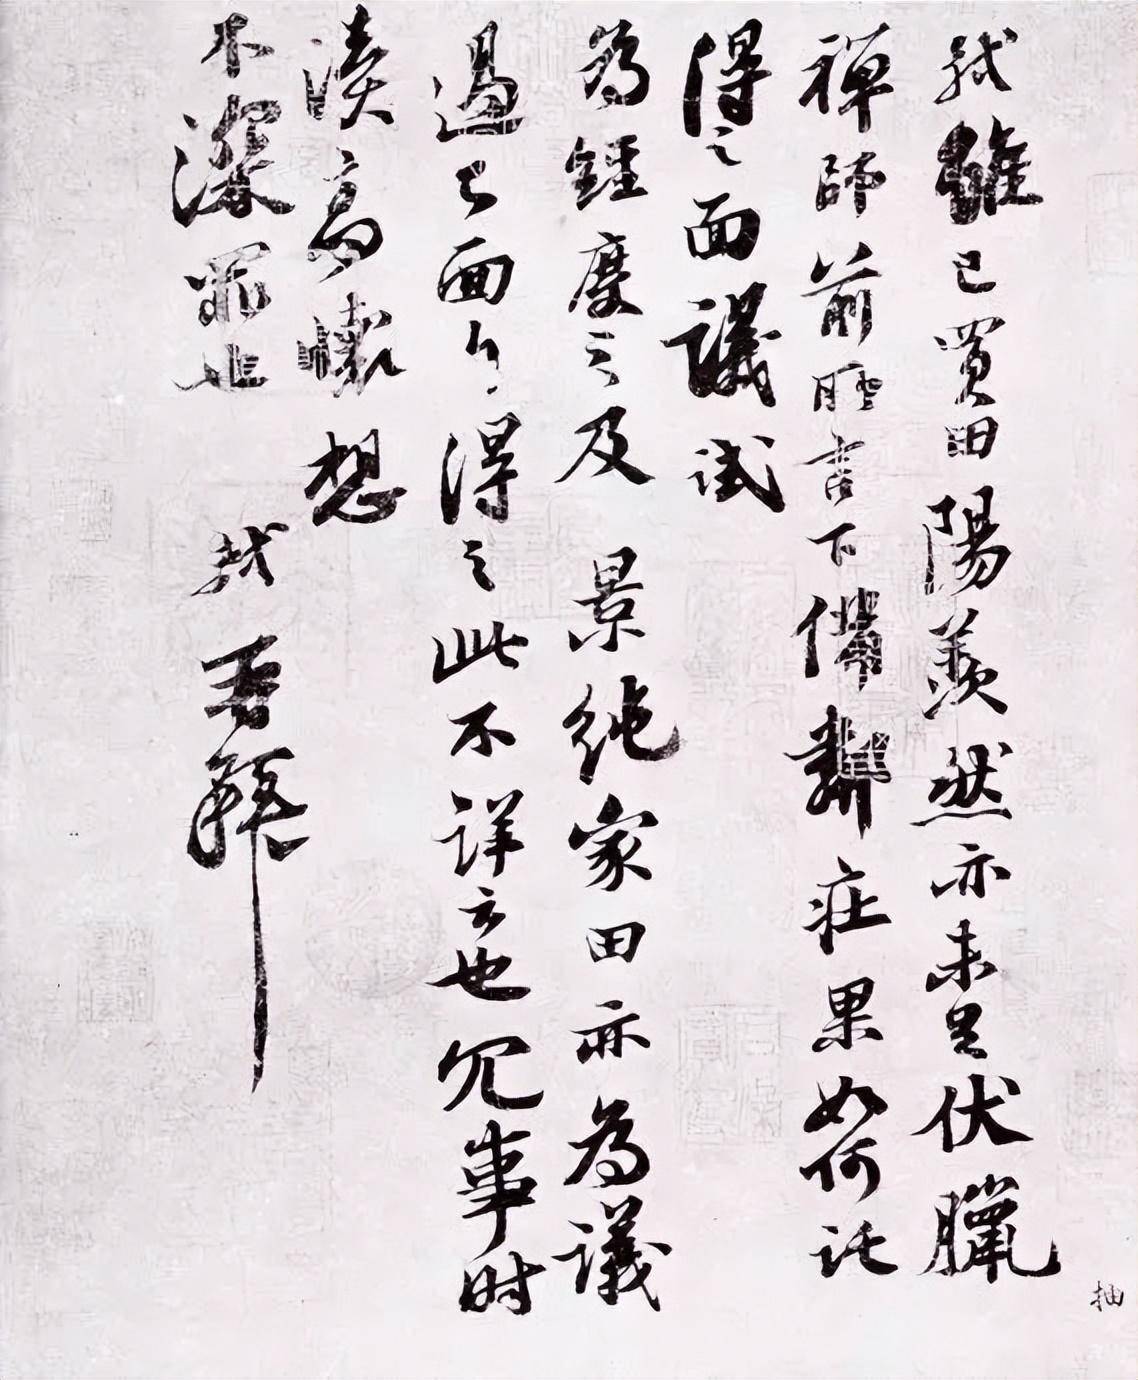 軾雖已買田陽羨然亦未足伏臘
禪師前所言下備鄰莊果如何託
得之面議試
為經度之及景純家田亦為議
過已面白得之此不詳云也冗事时
瀆高懷想
不深罪也軾再拜
抽